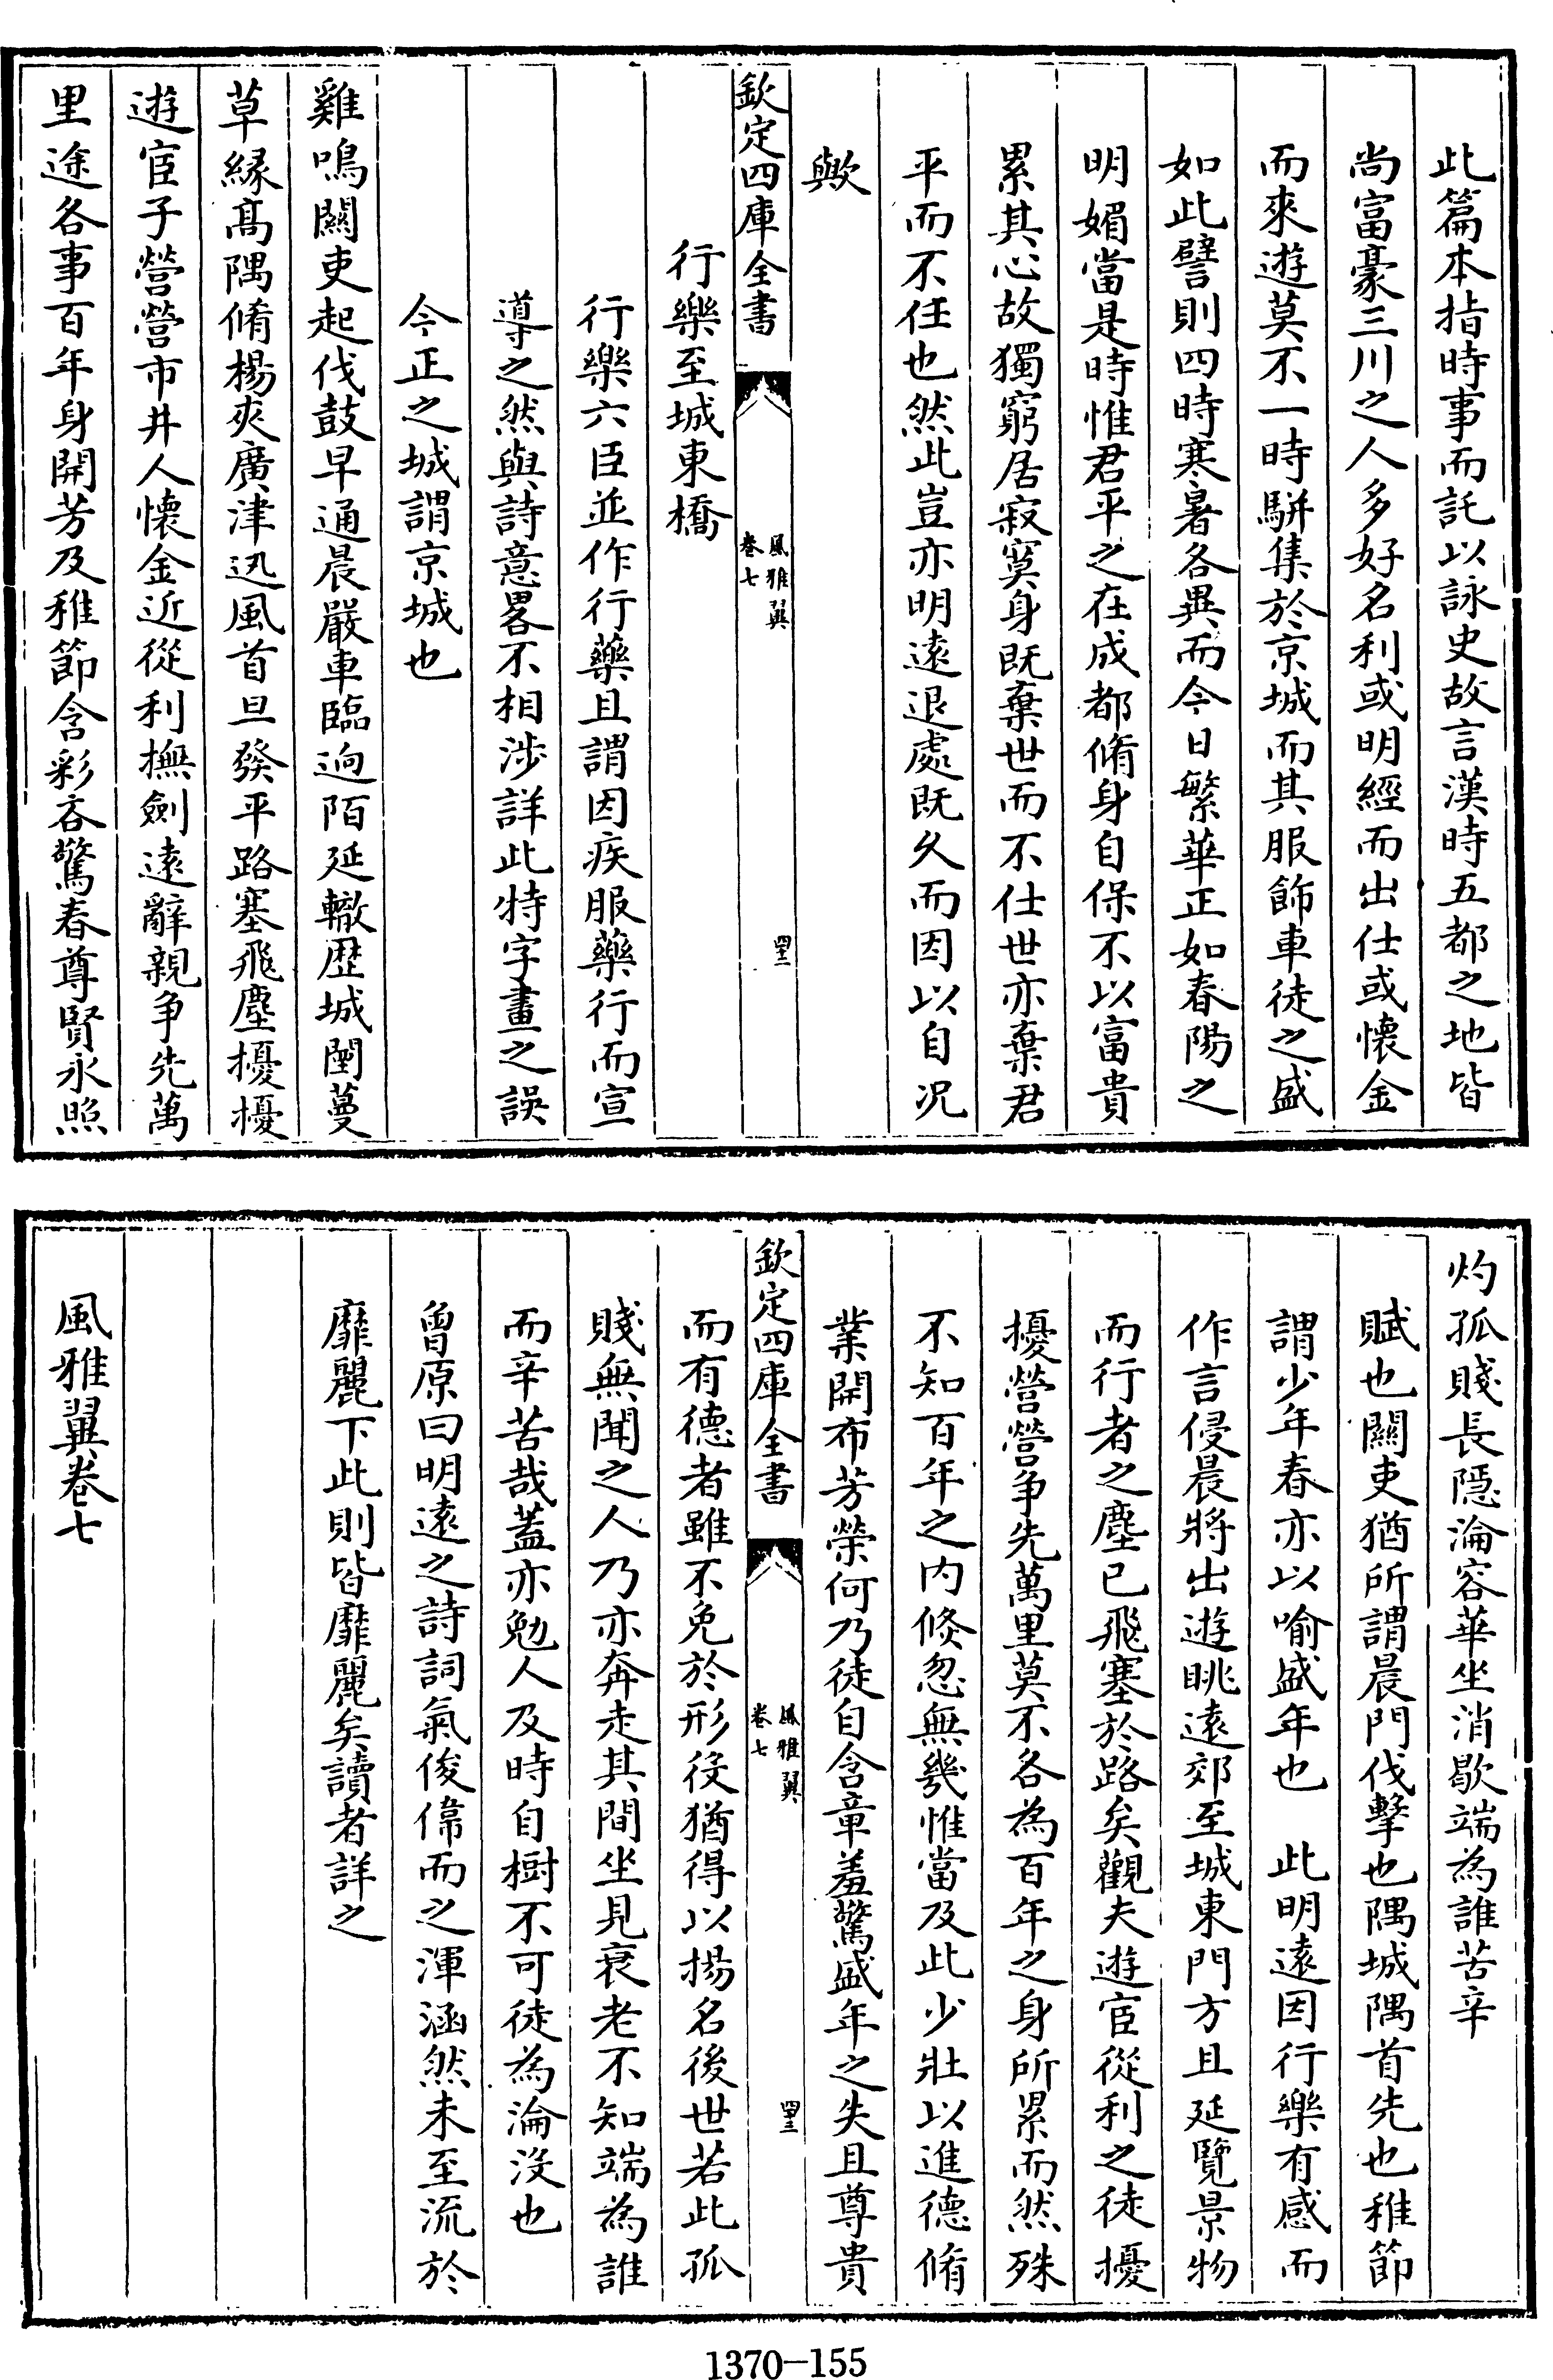 此篇本指時事而託以詠史故言漢時五都之地皆
尚富豪三川之人多好名利或明經而出仕或懷金
而來遊莫不一時駢集於京城而其服飾車徒之盛
如此譬則四時寒暑各異而今日繁華正如春陽之
明媚當是時惟君平之在成都脩身自保不以富貴
累其心故獨窮居寂寞身既棄世而不仕世亦棄君
平而不任也然此豈亦明遠退處既久而因以自况
歟
欽定四庫全書
風雅翼
卷七
四十二
行樂至城東橋
行樂六臣並作行藥且謂因疾服藥行而宣
導之然與詩意畧不相涉詳此特字畫之誤
今正之城謂京城也
雞鳴關吏起伐鼓早通晨嚴車臨逈陌延轍歴城闉蔓
草縁髙隅脩楊夾廣津迅風首旦發平路塞飛塵擾擾
遊宦子營營市井人懷金近從利撫劍遠辭親争先萬
里途各事百年身開芳及稚節含彩吝驚春尊賢永照
灼孤賤長隠淪容華坐消歇端為誰苦辛
賦也關吏猶所謂晨門伐擊也隅城隅首先也稚節
謂少年春亦以喻盛年也 此明遠因行樂有感而
作言侵晨將出遊眺遠郊至城東門方且延覽景物
而行者之塵已飛塞於路矣觀夫遊宦從利之徒擾
擾營營争先萬里莫不各為百年之身所累而然殊
不知百年之内倐忽無幾惟當及此少壯以進德脩
業開布芳榮何乃徒自含章羞驚盛年之失且尊貴
欽定四庫全書
風雅翼
卷七
四十三
而有德者雖不免於形役猶得以揚名後世若此孤
賤無聞之人乃亦奔走其間坐見衰老不知端為誰
而辛苦哉蓋亦勉人及時自樹不可徒為淪没也
曾原曰明遠之詩詞氣俊偉而之渾涵然未至流於
靡麗下此則皆靡麗矣讀者詳之
風雅翼卷七
1370-155